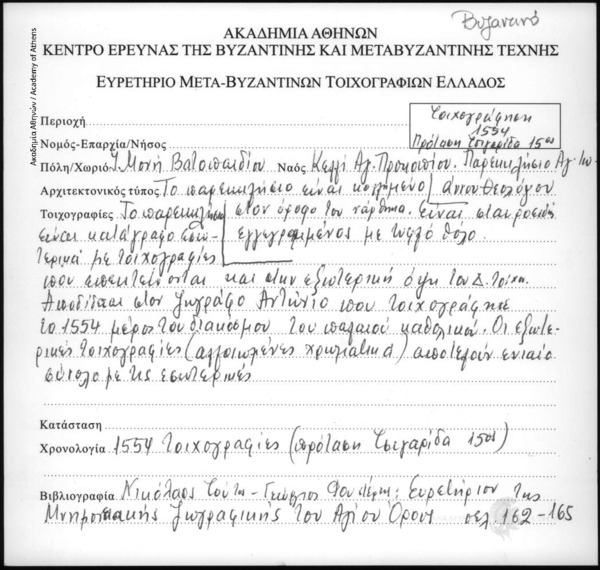 Βυζαντινό
ΑΚΑΔΗΜΙΑ ΑΘΗΝΩΝ
ΚΕΝΤΡΟ ΕΡΕΥΝΑΣ ΤΗΣ ΒΥΖΑΝΤΙΝΗΣ ΚΑΙ ΜΕΤΑΒΥΖΑΝΤΙΝΗΣ ΤΕΧΝΗΣ
ΕΥΡΕΤΗΡΙΟ ΜΕΤΑ-ΒΥΖΑΝΤΙΝΩΝ ΤΟΙΧΟΓΡΑΦΙΩΝ ΕΛΛΑΔΟΣ
Ακαδημία Αθηνών / Academy of Athens
Περιοχή
Τοιχογράφηση
1554
Πρόταση Τσιγαρίδα 15ος
Νομός-Επαρχία/Νήσος
Πόλη/Χωριό Ι. Μονή Βατοπαιδίου Ναός Κελλί Αγ. Προκοπίου. Παρεκκλήσιο Αγ. Ιω-
Αρχιτεκτονικός τύπος Το παρεκκλήσιο είναι κολλημένο άννου Θεολόγου
Τοιχογραφίες Το παρεκκλήσιο στον όροφο του νάρθηκα. Είναι σταυροειδή
είναι κατάγραφο εσω- εγγεγραμμένος με τυφλό θόλο.
τερικά με τοιχογραφίες
που επεκτείνονται και στην εξωτερική όψη του Δ. τοίχου.
Αποδίδεται στον ζωγράφο Αντώνιο που τοιχογράφησε
το 1554 μέρος του διακόσμου του παλαιού καθολικού. Οι εξωτε-
ρικές τοιχογραφίες (αλλοιωμένες χρωματικά) αποτελούν ενιαίο
σύνολο με τις εσωτερικές
Κατάσταση
Χρονολογία 1554 τοιχογραφίες (πρόταση Τσιγαρίδα 15ος)
Βιβλιογραφία Νικόλαος Τούτος - Γεώργιος Φουστέρης: Ευρετήριον της
Μνημειακής Ζωγραφικής του Αγίου Όρους σελ. 162-165